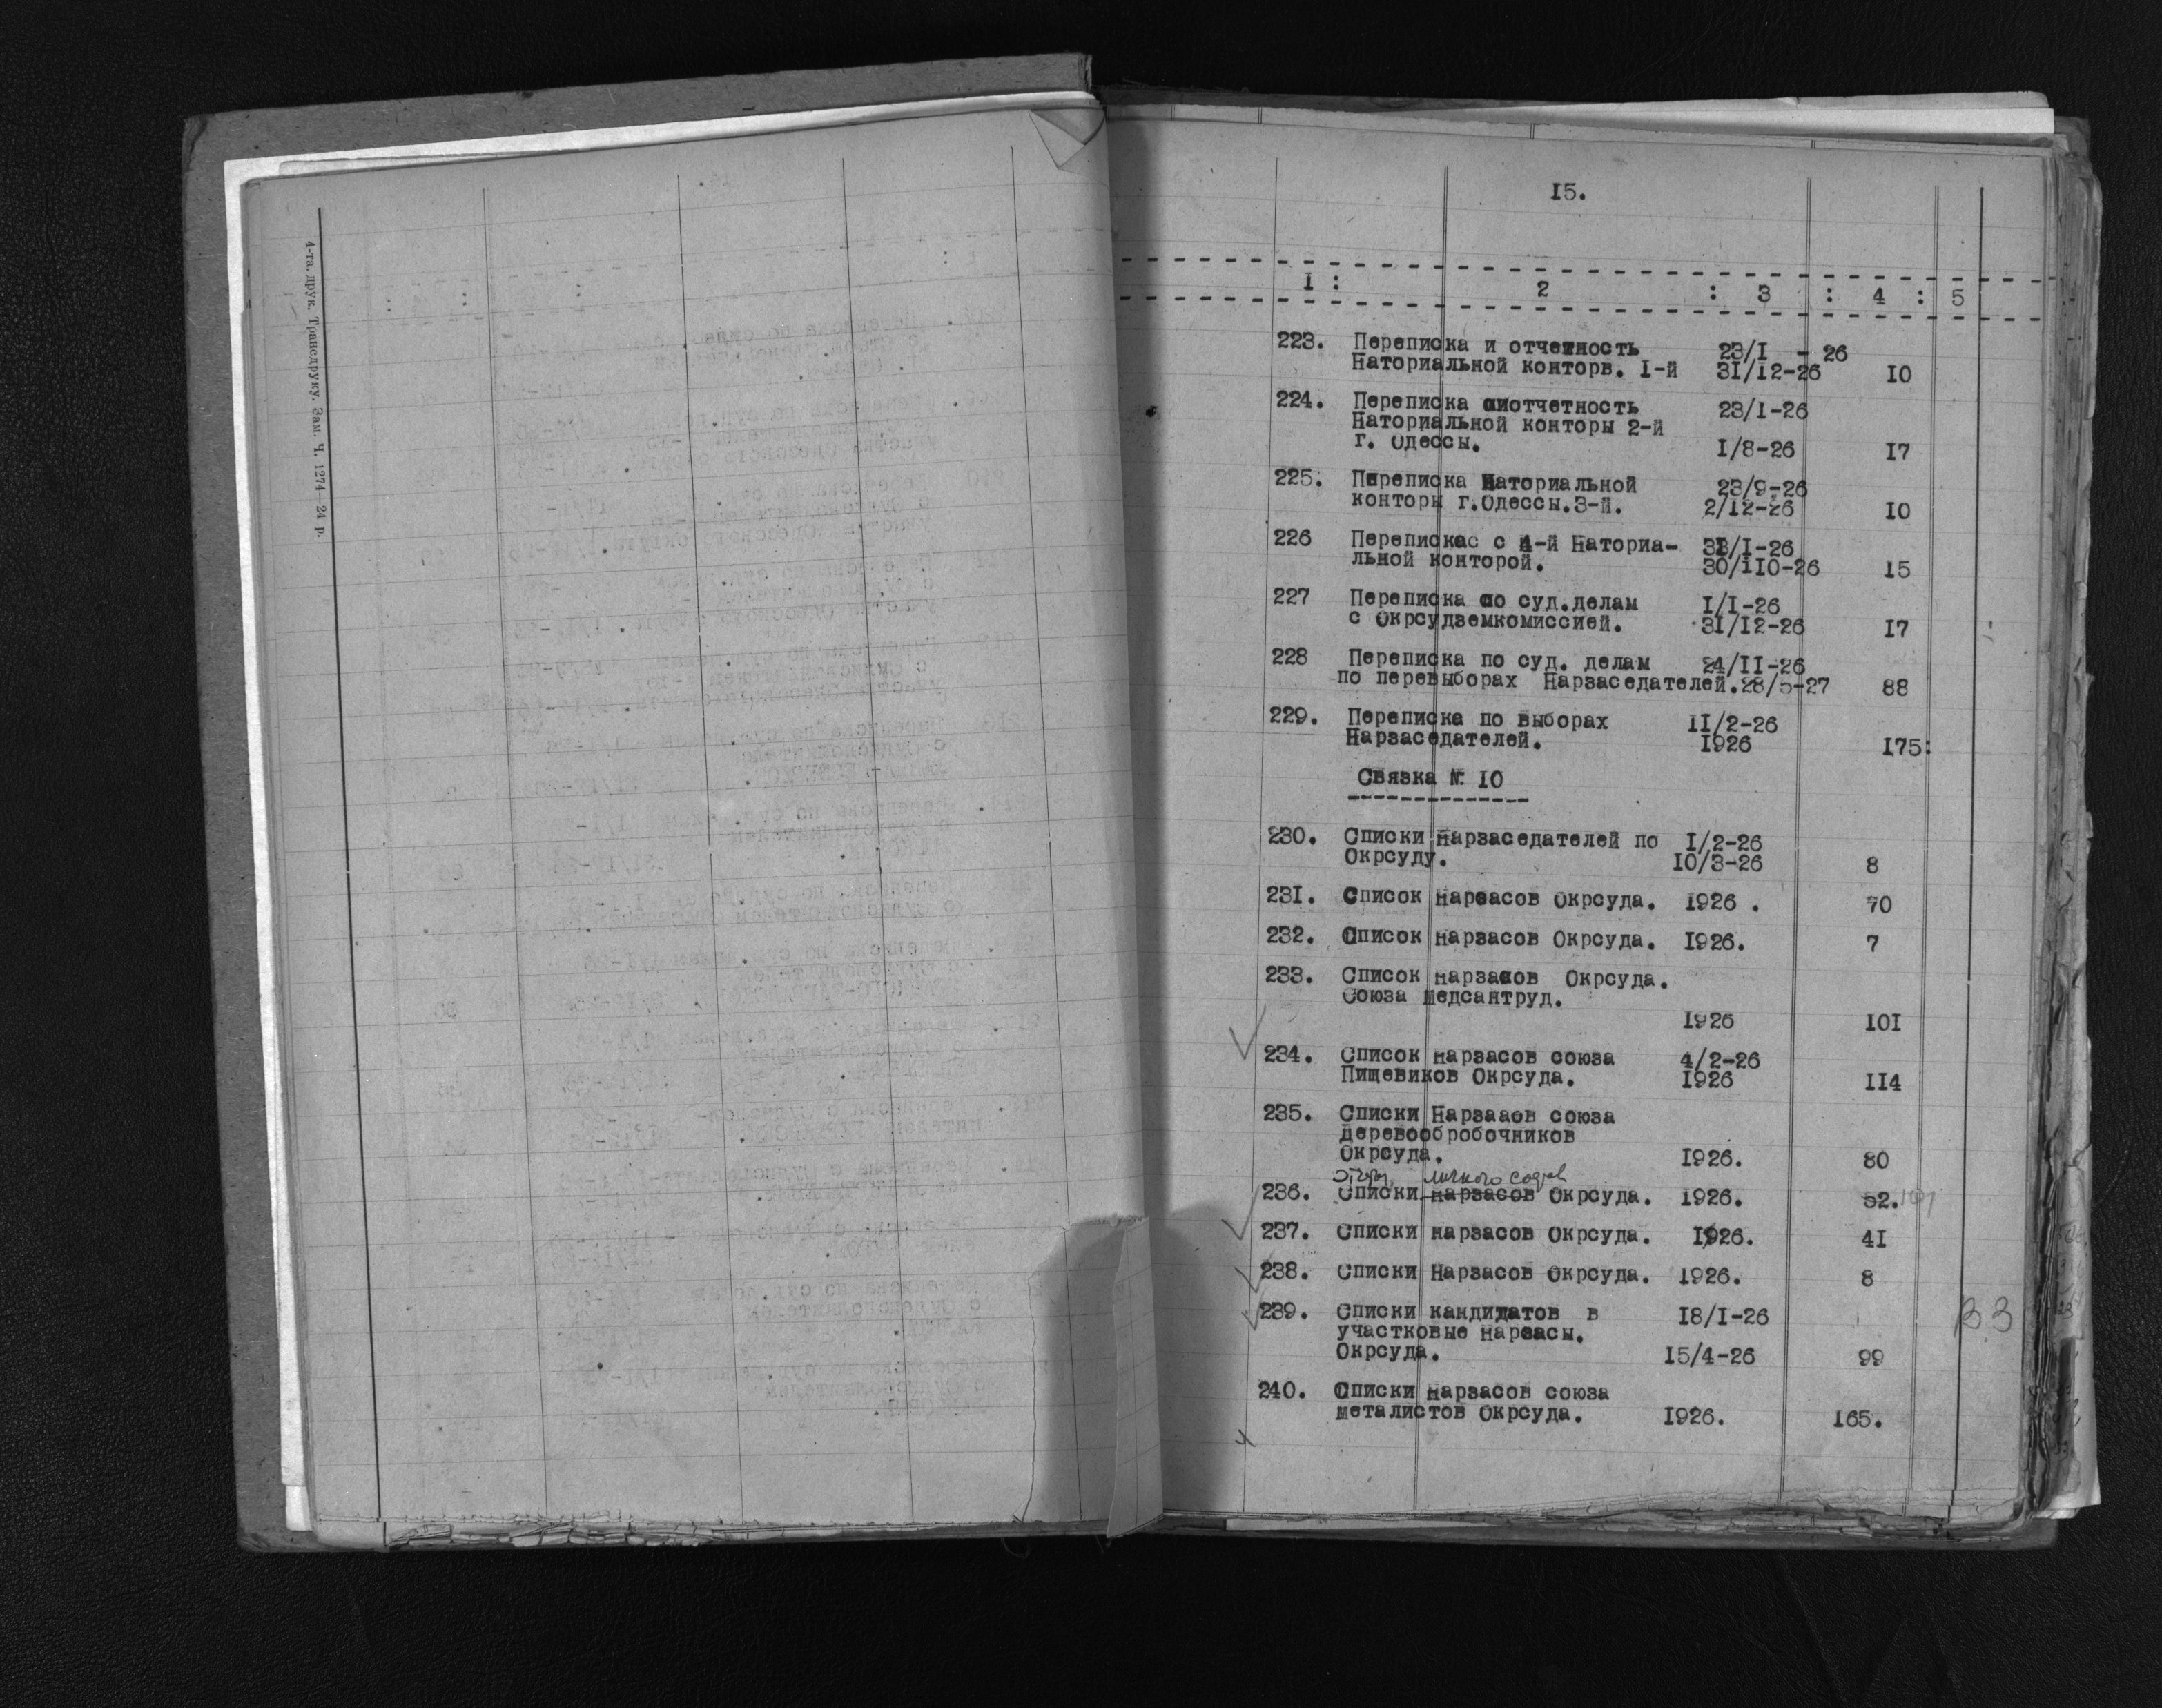 4-та. друк. Трансдруку. Зам. Ч. 1274—24 р.
15.
1 : 2 : 3 : 4 : 5
223. Переписка и отчетность 23/I - 26
Наториальной конторв. I-й 31/12-26 10
224. Переписка иотчетность 23/I-26
Наториальной конторы 2-й
г. Одессы. I/8-26 17
225. Переписка Наториальной 23/9-26
конторы г.Одессы.3-й. 2/12-26 10
226 Перепискас с 4-й Наториа- /I-26
льной конторой. 30/110-26 15
227 Переписка по суд.делам I/I-26
с Окрсудземкомиссией. 31/12-26 17
228 Переписка по суд. делам 24/II-26
по перевыборах Нарзаседателей.28/5-27 88
229. Переписка по выборах II/2-26
Нарзаседателей. 1926 175:
Связка № 10
230. Списки Нарзаседателей по I/2-26
Окрсуду. 10/3-26 8
231. Список Нарзасов Окрсуда. 1926 . 70
232. Список Нарзасов Окрсуда. 1926. 7
233. Список Нарзасов Окрсуда.
Союза Медсантруд.
1926 101
234. Список Нарзасов союза 4/2-26
Пищевиков Окрсуда. 1926 114
235. Списки Нарзааов союза
Деревообробочников
Окрсуда. 1926. 80
личного
236. Списки Нарзасов Окрсуда. 1926. 52.
237. Списки Нарзасов Окрсуда. 1926. 41
238. Списки Нарзасов Окрсуда. 1926. 8
239. Списки кандидатов в 18/I-26
участковые Нарзасы.
Окрсуда. 15/4-26 99
33
240. Списки Нарзасов союза
Металистов Окрсуда. 1926. 165.